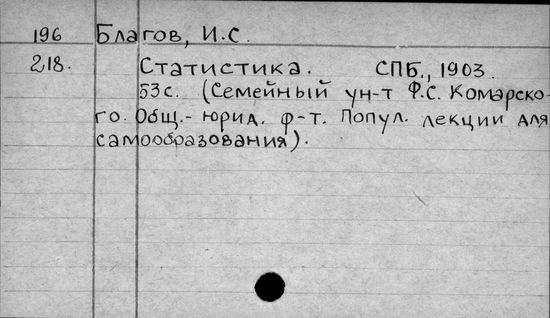 196 Благов, И.С.
218. Статистика. СПБ., 1903.
53с. (Семейный ун-т Ф.С. Комарско-
го. Общ.-юрид. ф-т. Попул. лекции для
самообразования).